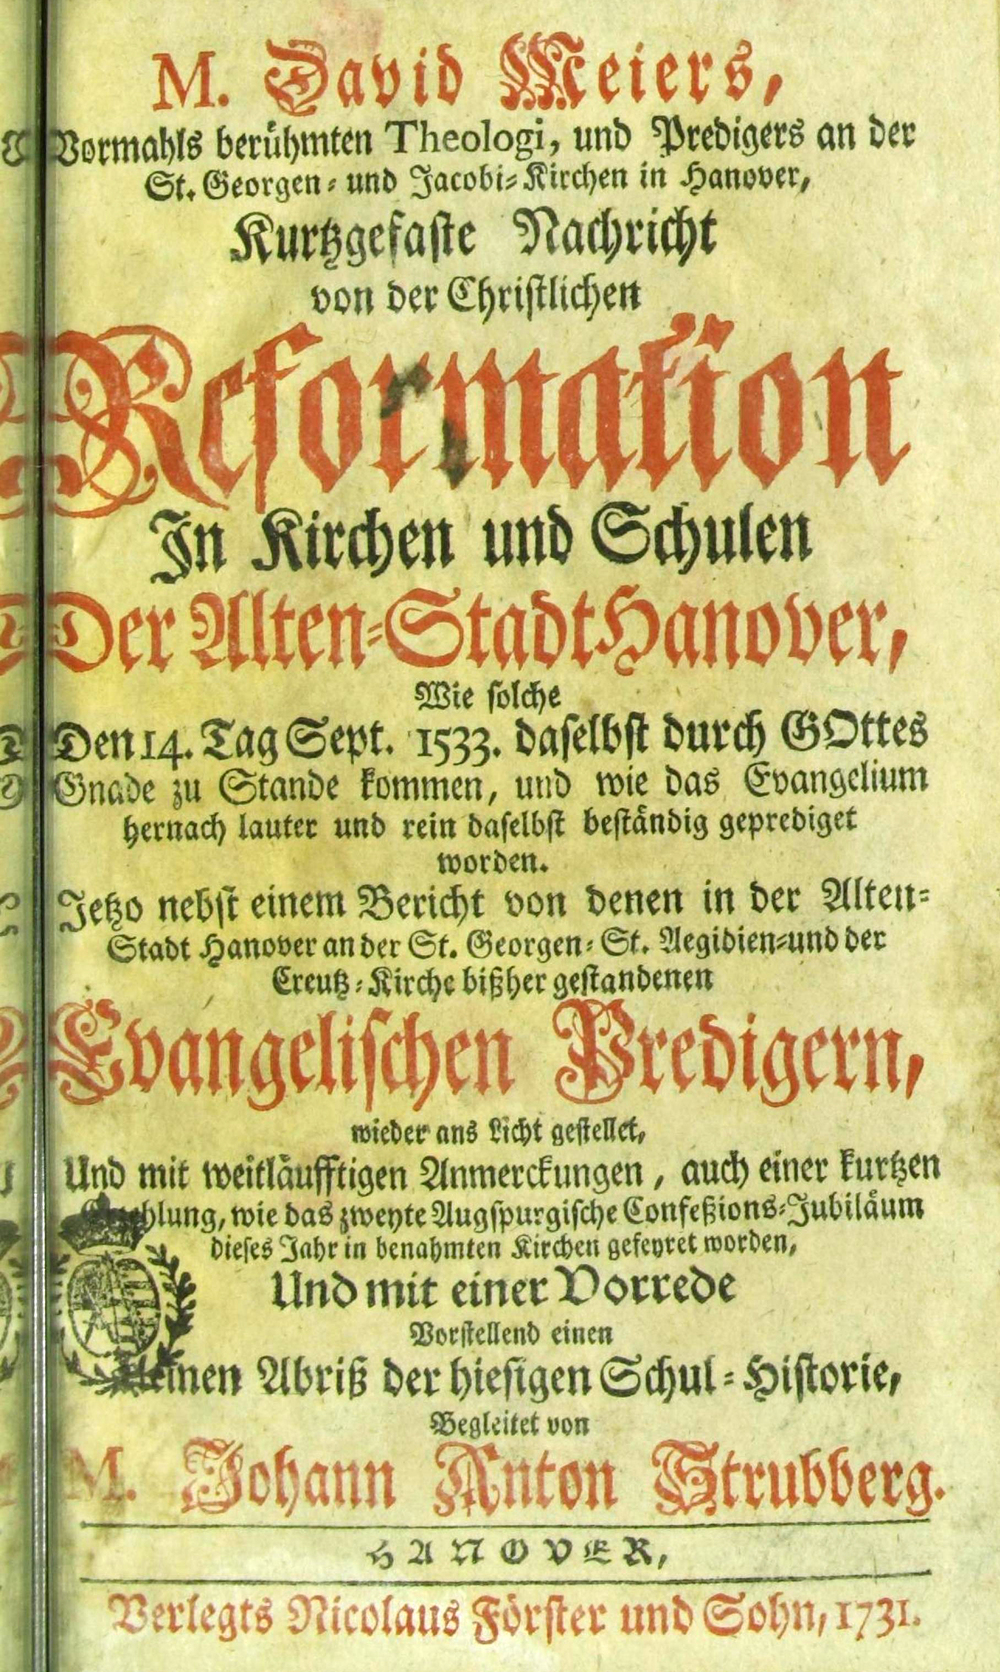 M. David Meiers,
Vormahls berühmten Theologi, und Predigers an der
St. Georgen- und Jacobi-Kirchen in Hanover,
Kurtzgefaste Nachricht
von der Christlichen
Reformation
In Kirchen und Schulen
Der Alten-Stadt Hanover,
Wie solche
Den 14. Tag Sept. 1533. daselbst durch GOttes
Gnade zu Stande kommen, und wie das Evangelium
hernach lauter und rein daselbst beständig geprediget
worden.
Jetzo nebst einem Bericht von denen in der Alten-
Stadt Hanover an der St. Georgen- St. Aegidien- und der
Creutz-Kirche bißher gestandenen
Evangelischen Predigern,
wieder ans Licht gestellet,
Und mit weitläufftigen Anmerckungen, auch einer kurtzen
wie das zweyte Augspurgische Confeßions-Jubiläum
dieses Jahr in benahmten Kirchen gefeyret worden,
Und mit einer Vorrede
Vorstellend einen
kleinen Abriß der hiesigen Schul-Historie,
Begleitet von
M. Johann Anton Strubberg.
HANOVER,
Verlegts Nicolaus Förster und Sohn, 1731.